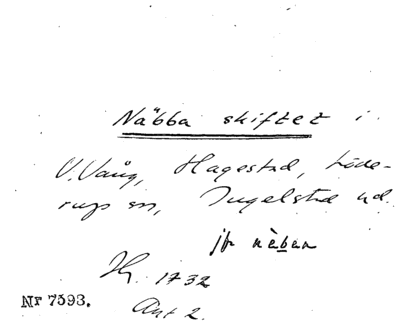 Näbba skiftet i
V. Vång, Hagestad, Löde-
rups sn, Ingelstad hd.
jfr näben
Hg. 1732
Akt 2.
Nr 7593.